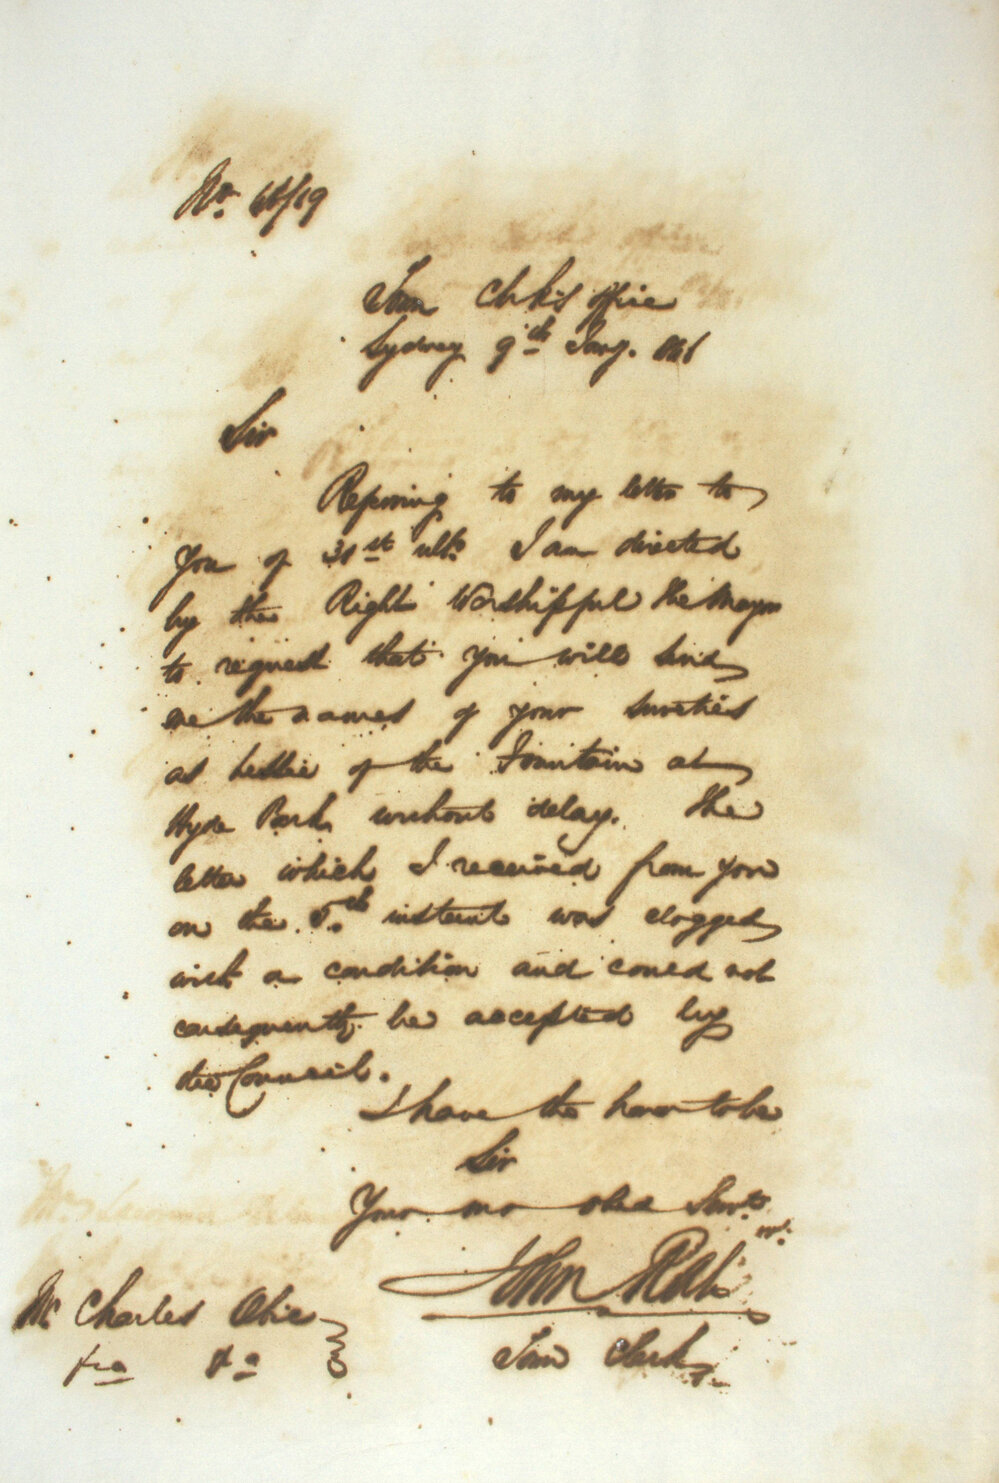 No. 46/19
Town Clk's Office
Sydney 9th Jany. 1846
Sir
Referring to my letter to
you of 31st ulto. I am directed
by the Right Worshipful the Mayor
to request that you will send
me the names of your sureties
as Lessee of the Fountain at
Hyde Park without delay. The
letter which I received from you
on the 5th instant was clogged
with a condition and could not
consequently be accepted by
the Council.
I have the honor to be
Sir
Your mo obed Servt.
John
Town Clerk
Mr Charles
&c &c